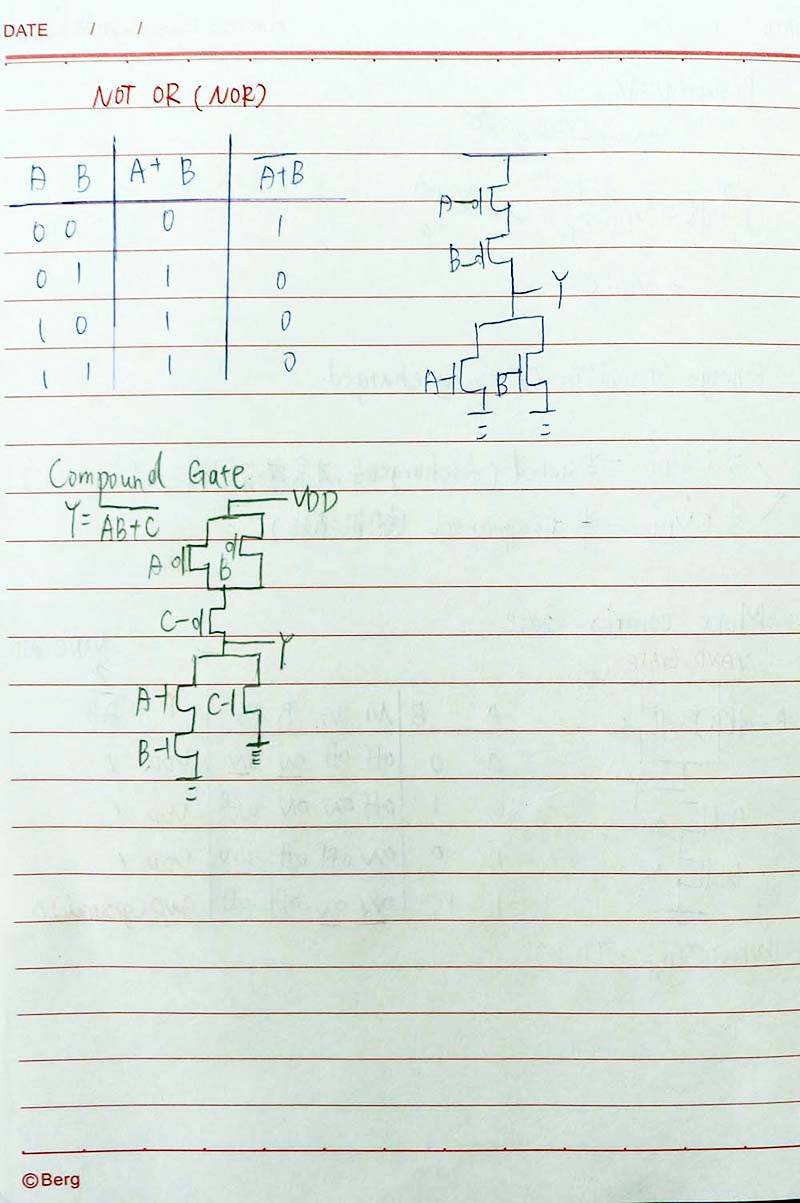 DATE / /
NOT OR (NOR)
A B A+ B A+B
0 0 0 1
0 1 1 0
1 0 1 0
1 1 1 0
A
B
Y
A B
Compound Gate.
Y = AB+C
VDD
A B
C
Y
A C
B
©Berg